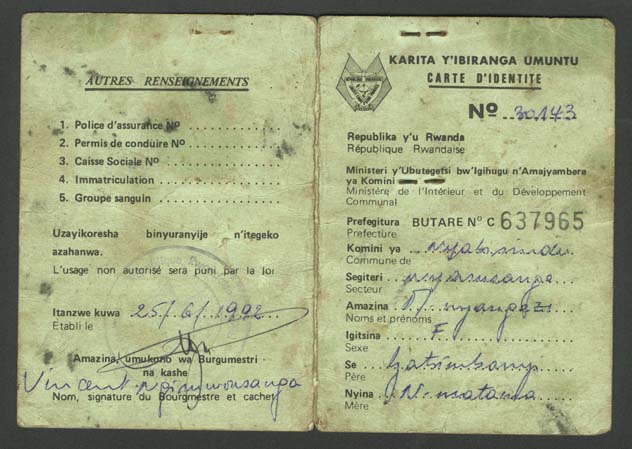 AUTRES RENSEIGNEMENTS
1. Police d'assurance Nº
2. Permis de conduire Nº
3. Caisse Sociale Nº
4. Immatriculation
5. Groupe sanguin
Uzayikoresha binyuranyije n'itegeko
azahanwa.
L'usage non autorisé sera puni par la loi
Itanzwe kuwa 25/6/1992
Etabli le
Amazina, umukono wa Burgumestri
na kashe
Vincent
Nom, signature du Bourgmestre et cachet
KARITA Y'IBIRANGA UMUNTU
CARTE D'IDENTITE
Nº 30.143
Republika y'u Rwanda
République Rwandaise
Ministeri y'Ubutegetsi bw'Igihugu n'Amajyambere
ya Komini
Ministére de l'Intérieur et du Développement
Communal
Prefegitura BUTARE Nº C 637965
Prefecture
Komini ya
Commune de
Segiteri
Secteur
Amazina
Noms et prénoms
Igitsina F
Sexe
Se
Père
Nyina
Mère